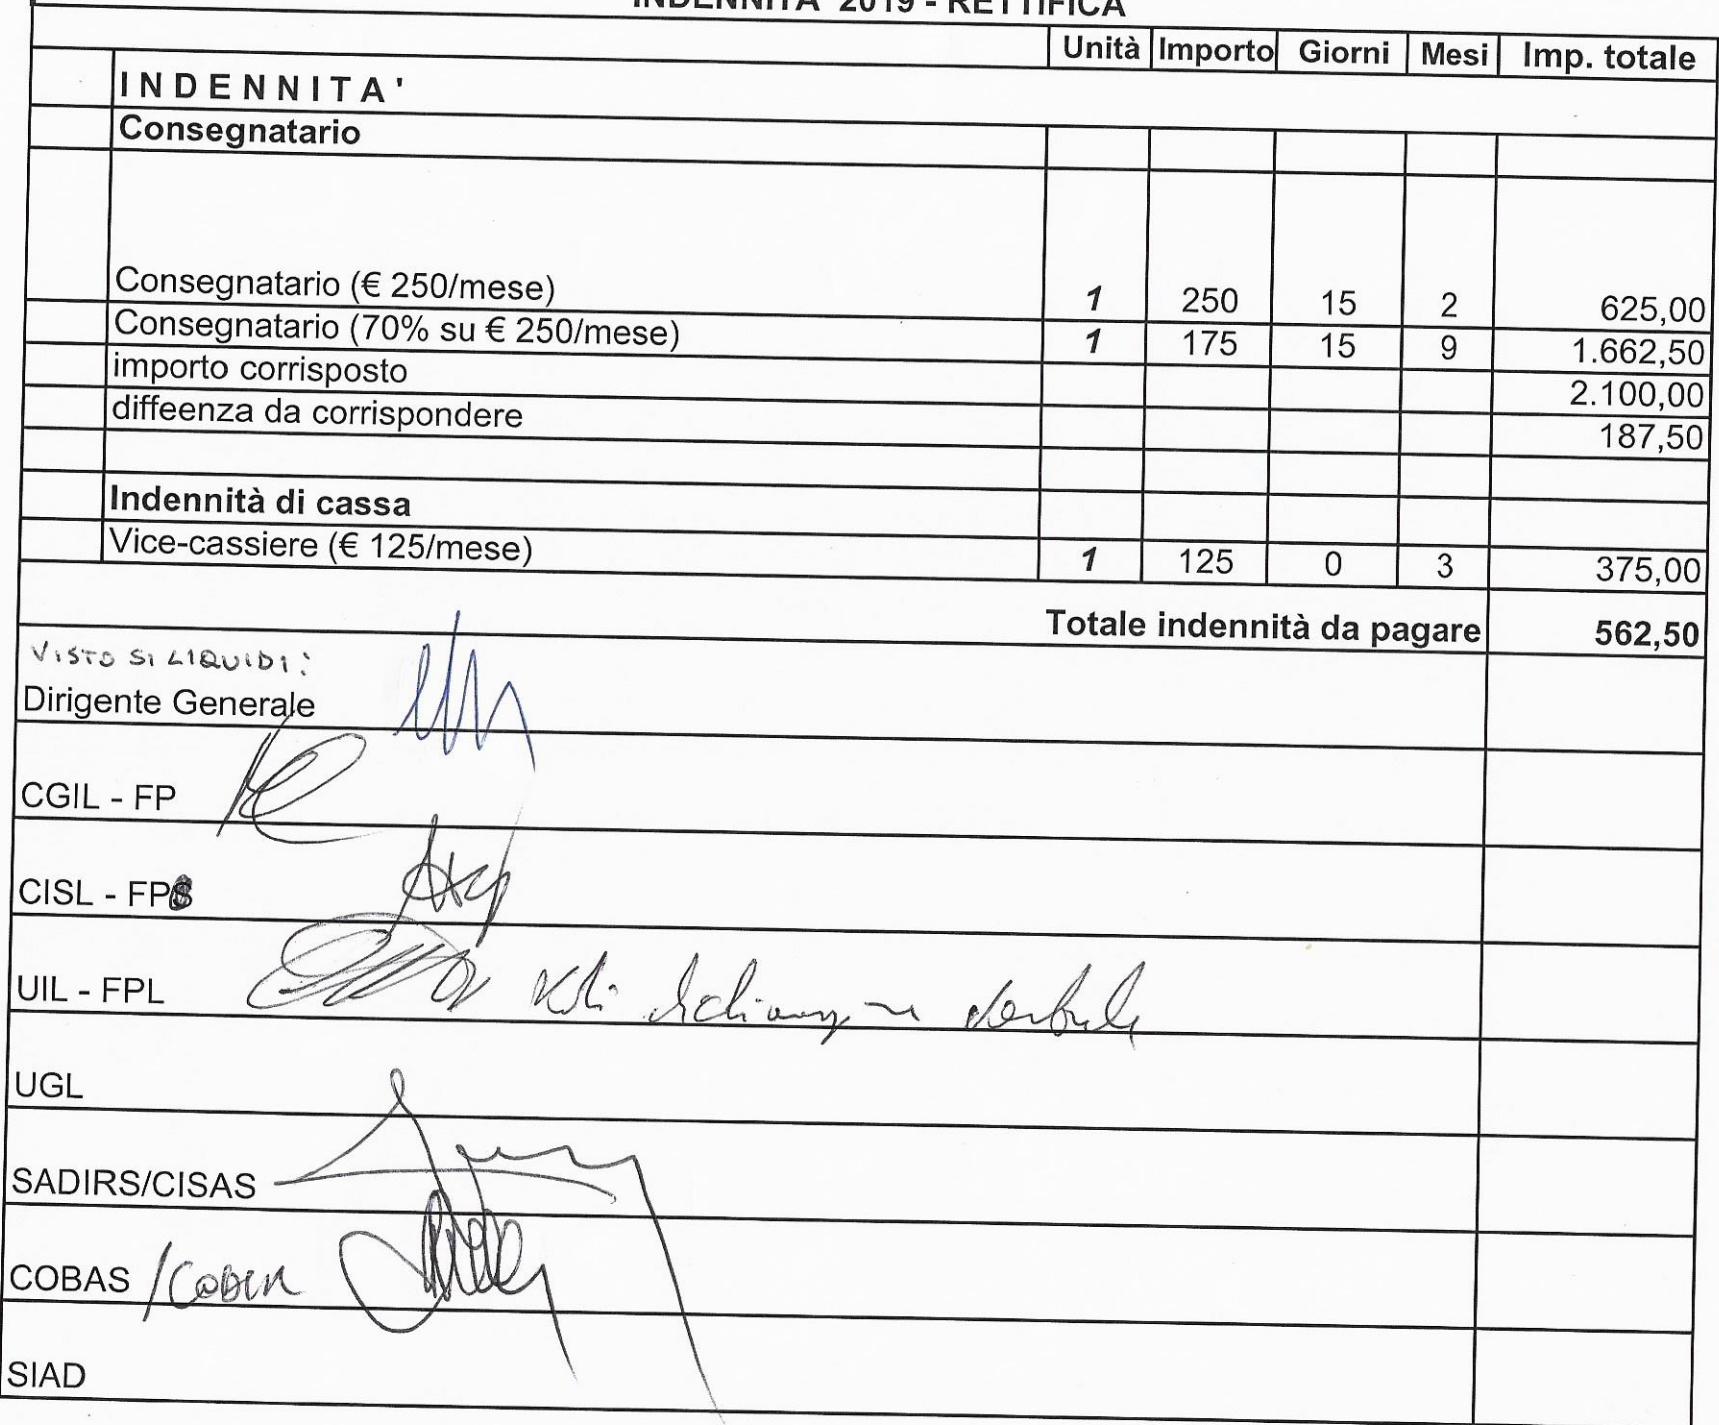 INDENNITA' 2019 - RETTIFICA
Unità Importo Giorni Mesi Imp. totale
INDENNITA'
Consegnatario
Consegnatario (€ 250/mese) 1 250 15 2 625,00
Consegnatario (70% su € 250/mese) 1 175 15 9 1.662,50
importo corrisposto 2.100,00
diffeenza da corrispondere 187,50
Indennità di cassa
Vice-cassiere (€ 125/mese) 1 125 0 3 375,00
Totale indennità da pagare 562,50
VISTO SI LIQUIDI:
Dirigente Generale
CGIL - FP
CISL - FP
UIL - FPL
UGL
SADIRS/CISAS
COBAS /CODIR
SIAD